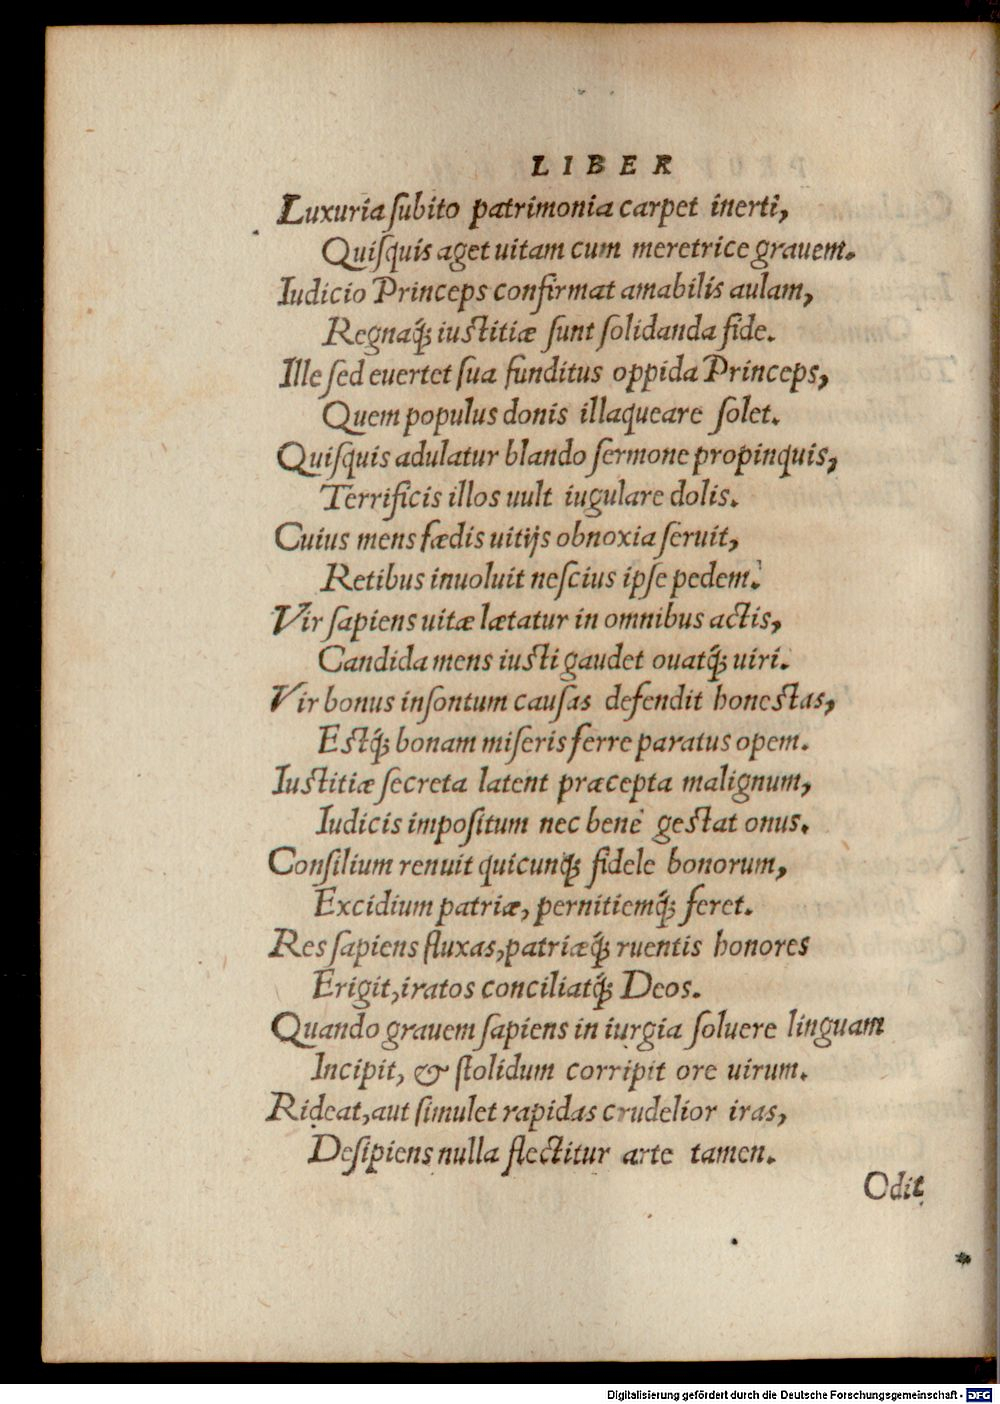 LIBER
Luxuria ſubito patrimonia carpet inerti,
Quiſquis aget uitam cum meretrice grauem.
Iudicio Princeps confirmat amabilis aulam,
Regnaq́; iuſtitiæ ſunt ſolidanda fide.
Ille ſed euertet ſua funditus oppida Princeps,
Quem populus donis illaqueare ſolet.
Quiſquis adulatur blando ſermone propinquis,
Terrificis illos uult iugulare dolis.
Cuius mens fædis uitijs obnoxia ſeruit,
Retibus inuoluit neſcius ipſe pedem.
Vir ſapiens uitæ lætatur in omnibus actis,
Candida mens iuſti gaudet ouatq́; uiri.
Vir bonus inſontum cauſas defendit honeſtas,
Eſtq́; bonam miſeris ferre paratus opem.
Iuſtitiæ ſecreta latent præcepta malignum,
Iudicis impoſitum nec benè geſtat onus.
Conſilium renuit quicunq́; fidele bonorum,
Excidium patriæ, pernitiemq́; feret.
Res ſapiens fluxas, patriæq́; ruentis honores
Erigit, iratos conciliatq́; Deos.
Quando grauem ſapiens in iurgia ſoluere linguam
Incipit, & ſtolidum corripit ore uirum.
Rideat, aut ſimulet rapidas crudelior iras,
Deſipiens nulla flectitur arte tamen.
Odit
Digitalisierung gefördert durch die Deutsche Forschungsgemeinschaft - DFG